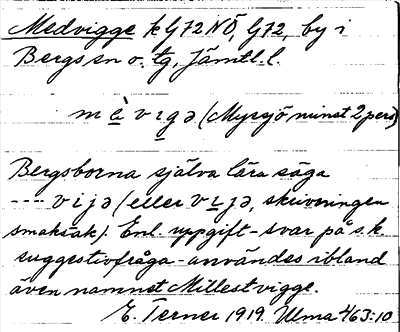 Medvigge k G 72 NÖ, G 72, by i
Bergs sn o. tg, Jämtl. l.
m à v ı g ə (Myssjö minst 2 pers)
Bergsborna själva lära säga
---- v i j ə (eller v ı j ə, skrivningen
smaksak). Enl. uppgift - svar på s.k.
suggestivfråga - användes ibland
även namnet Millestvigge.
E. Terner 1919. Ulma 463:10